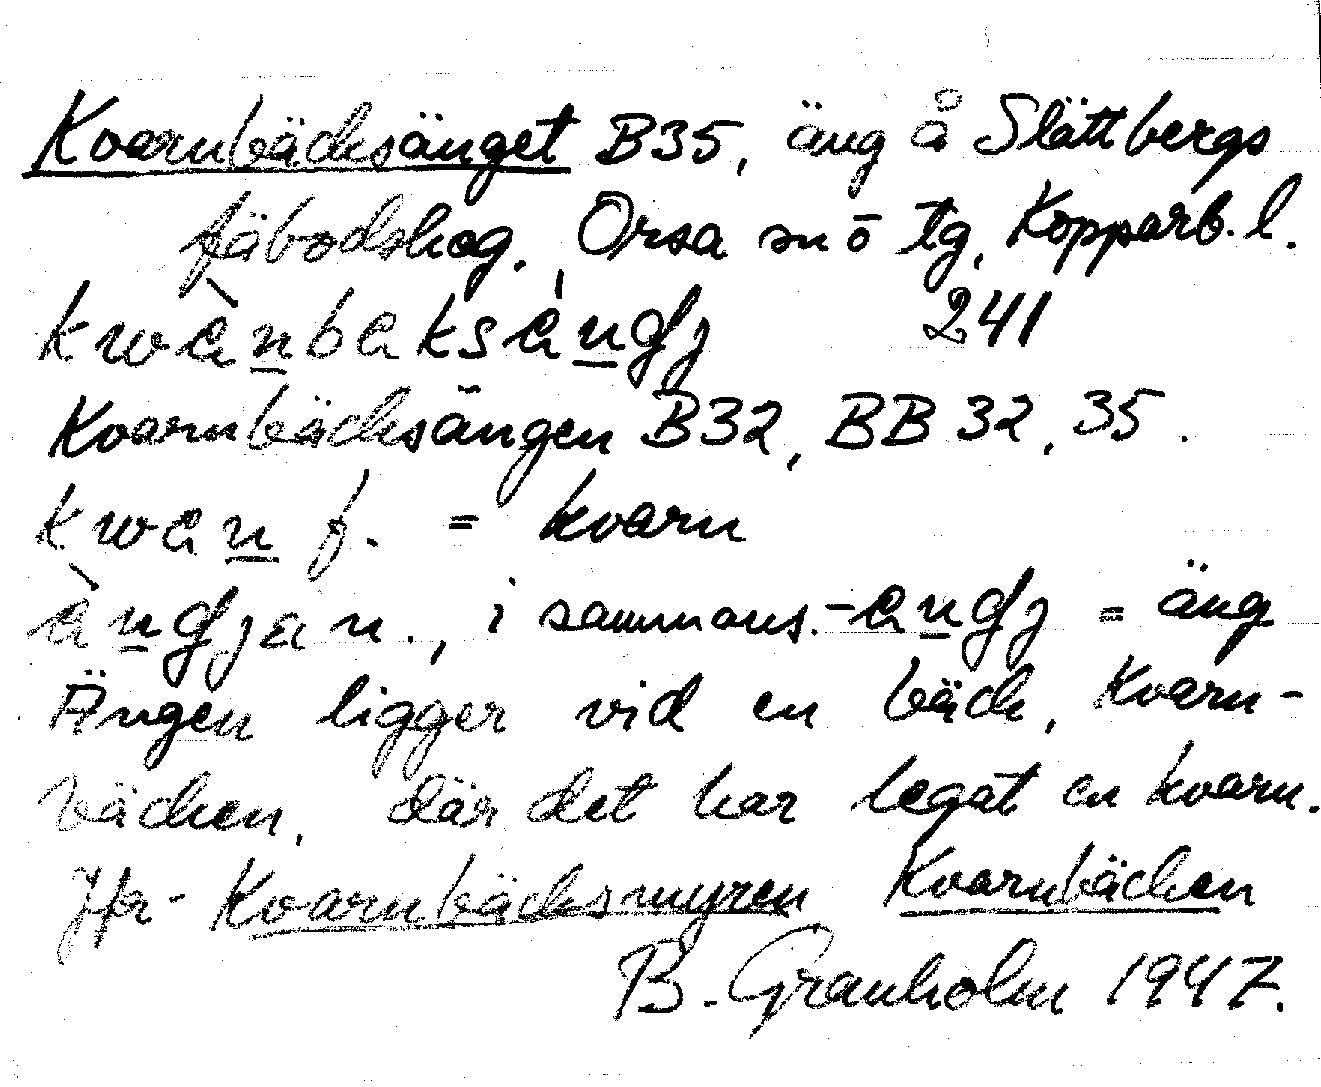 Kvarnbäcksänget B35, äng å Slättbergs
fäbodskog. Orsa sn ö tg, Kopparb. l.
kwànbaksáŋgj 241
Kvarnbäcksängen B32, BB 32, 35.
kwan f. = kvarn
àngjan., i sammans. -angj = äng
Ängen ligger vid en bäck, Kvarn-
bäcken, där det har legat en kvarn.
Jfr Kvarnbäcksmyren Kvarnbäcken
B. Granholm 1947.